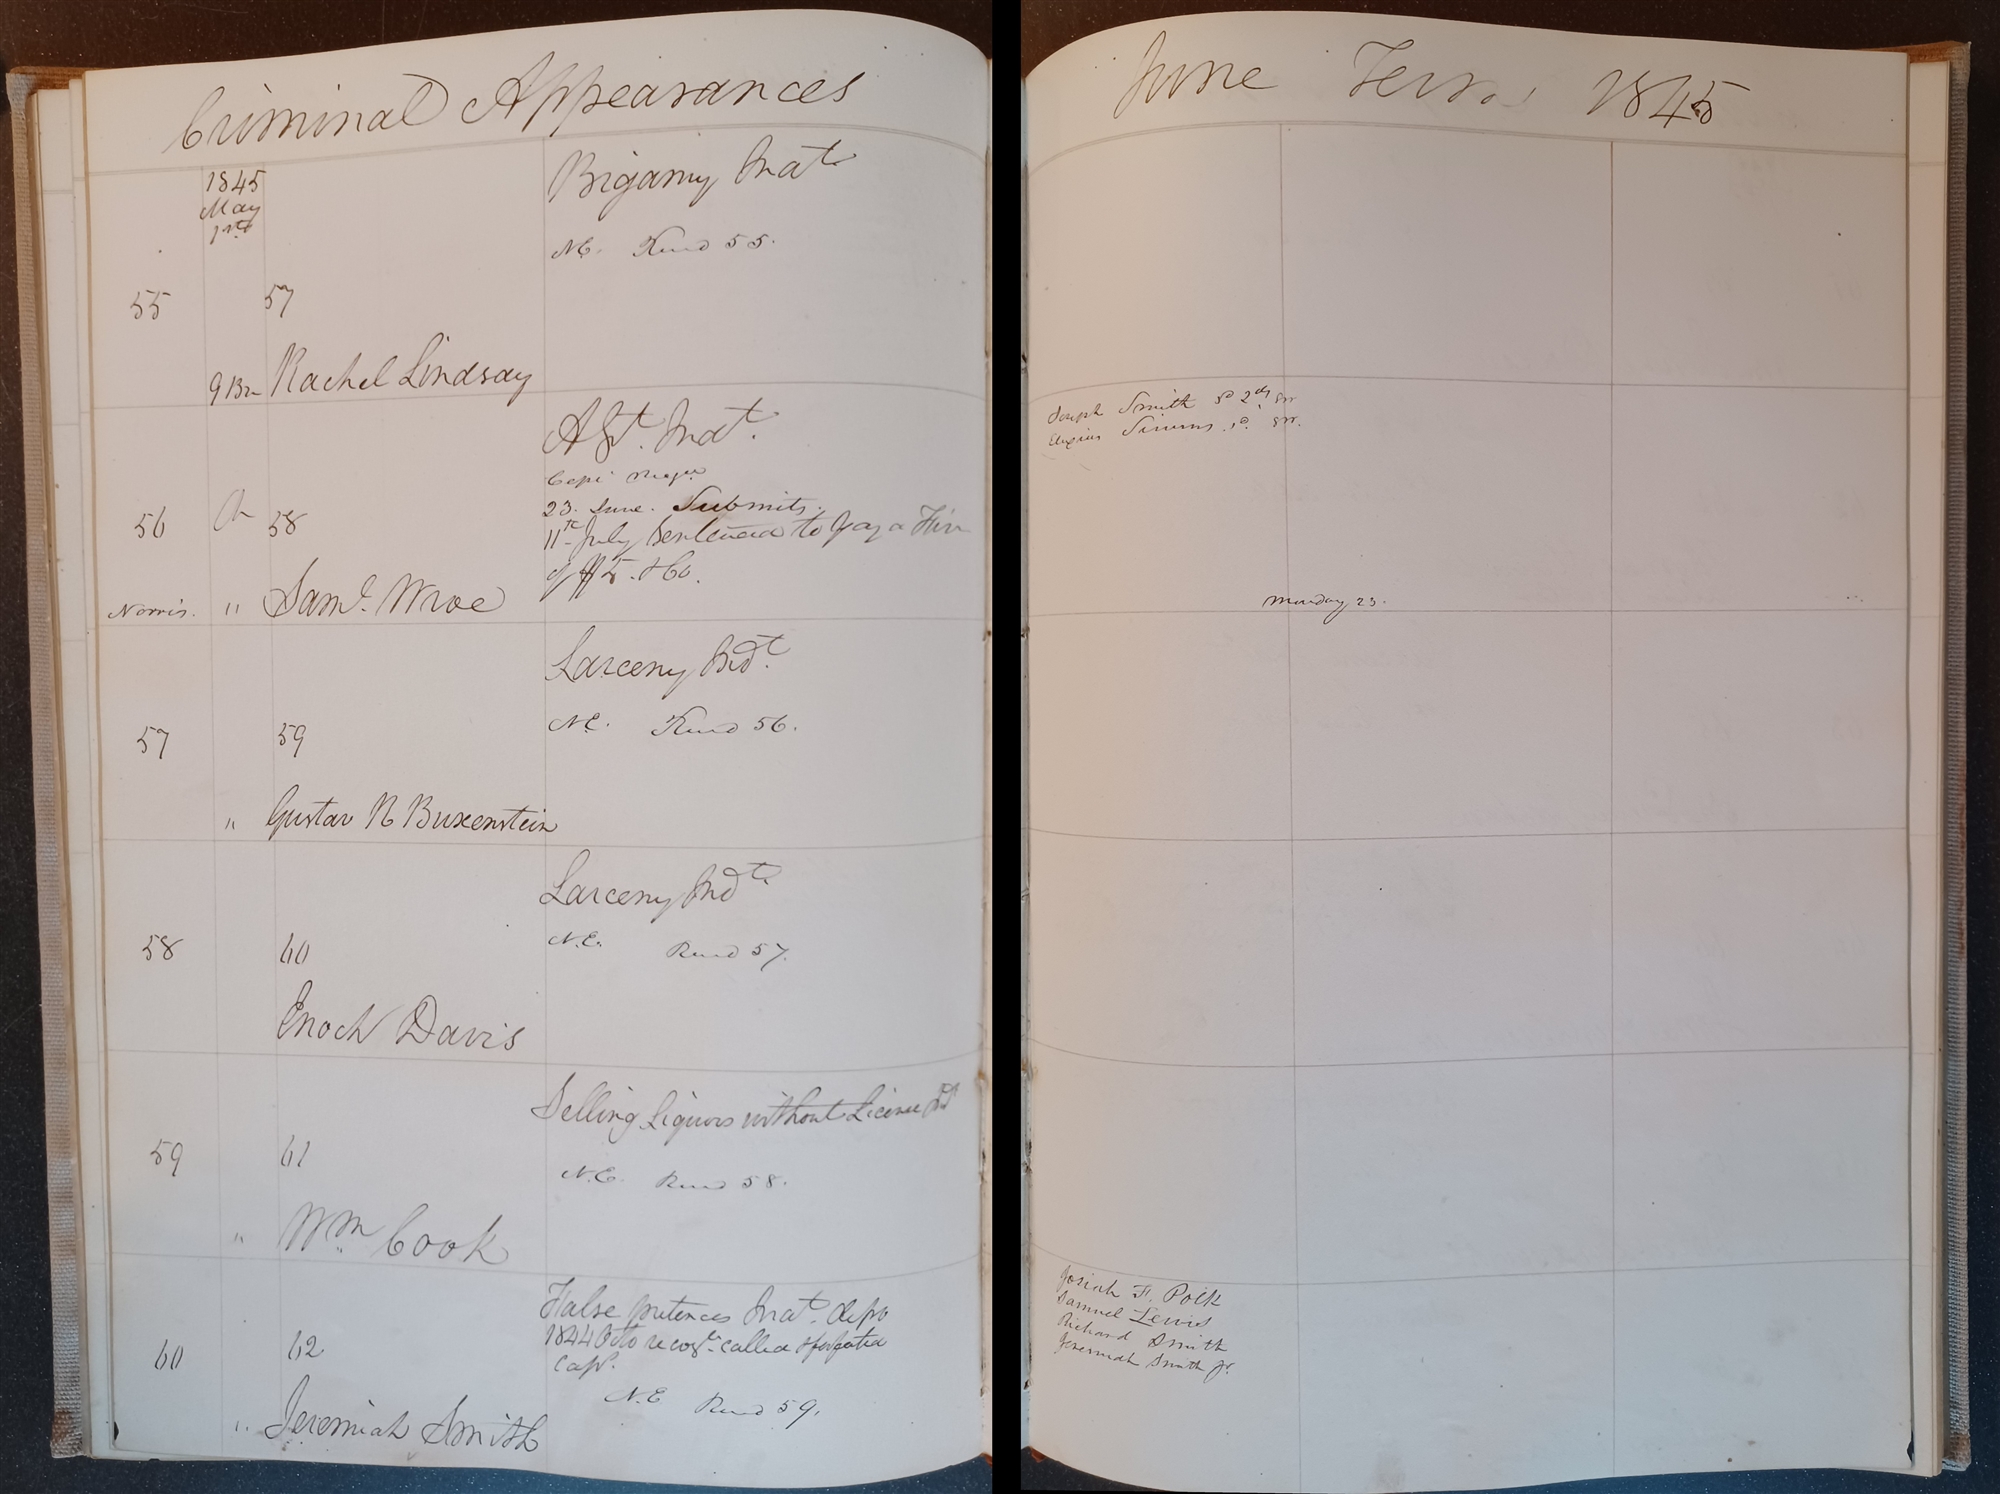 Criminal Appearances
1845
May
1st
Bigamy Indt
N.E. Rend 55.
55
57
9 Bn Rachel Lindsay
A&Bt. Indt.
Cepi
23. June. Submits.
11th July Sentenced to pay a Fine
of $5. & Co.
56
58
Norris. " Saml. Wroe
Larceny Indt.
N.E. Rend 56.
57
59
" Gustav R Buxenstein
Larceny Indt
N.E. Rend 57.
58
60
Enoch Davis
Selling Liquors without License Indt
N.E. Rend 58.
59
61
" Wm Cook
False pretences Indt.
1844 Octo recogce called & forfeited
Caps.
N.E Rend 59.
60
62
" Jeremiah Smith
June Term 1845
Joseph Smith
Simms
Monday 23.
Josiah F. Polk
Samuel Lewis
Richard Smith
Jeremiah Smith Jr.